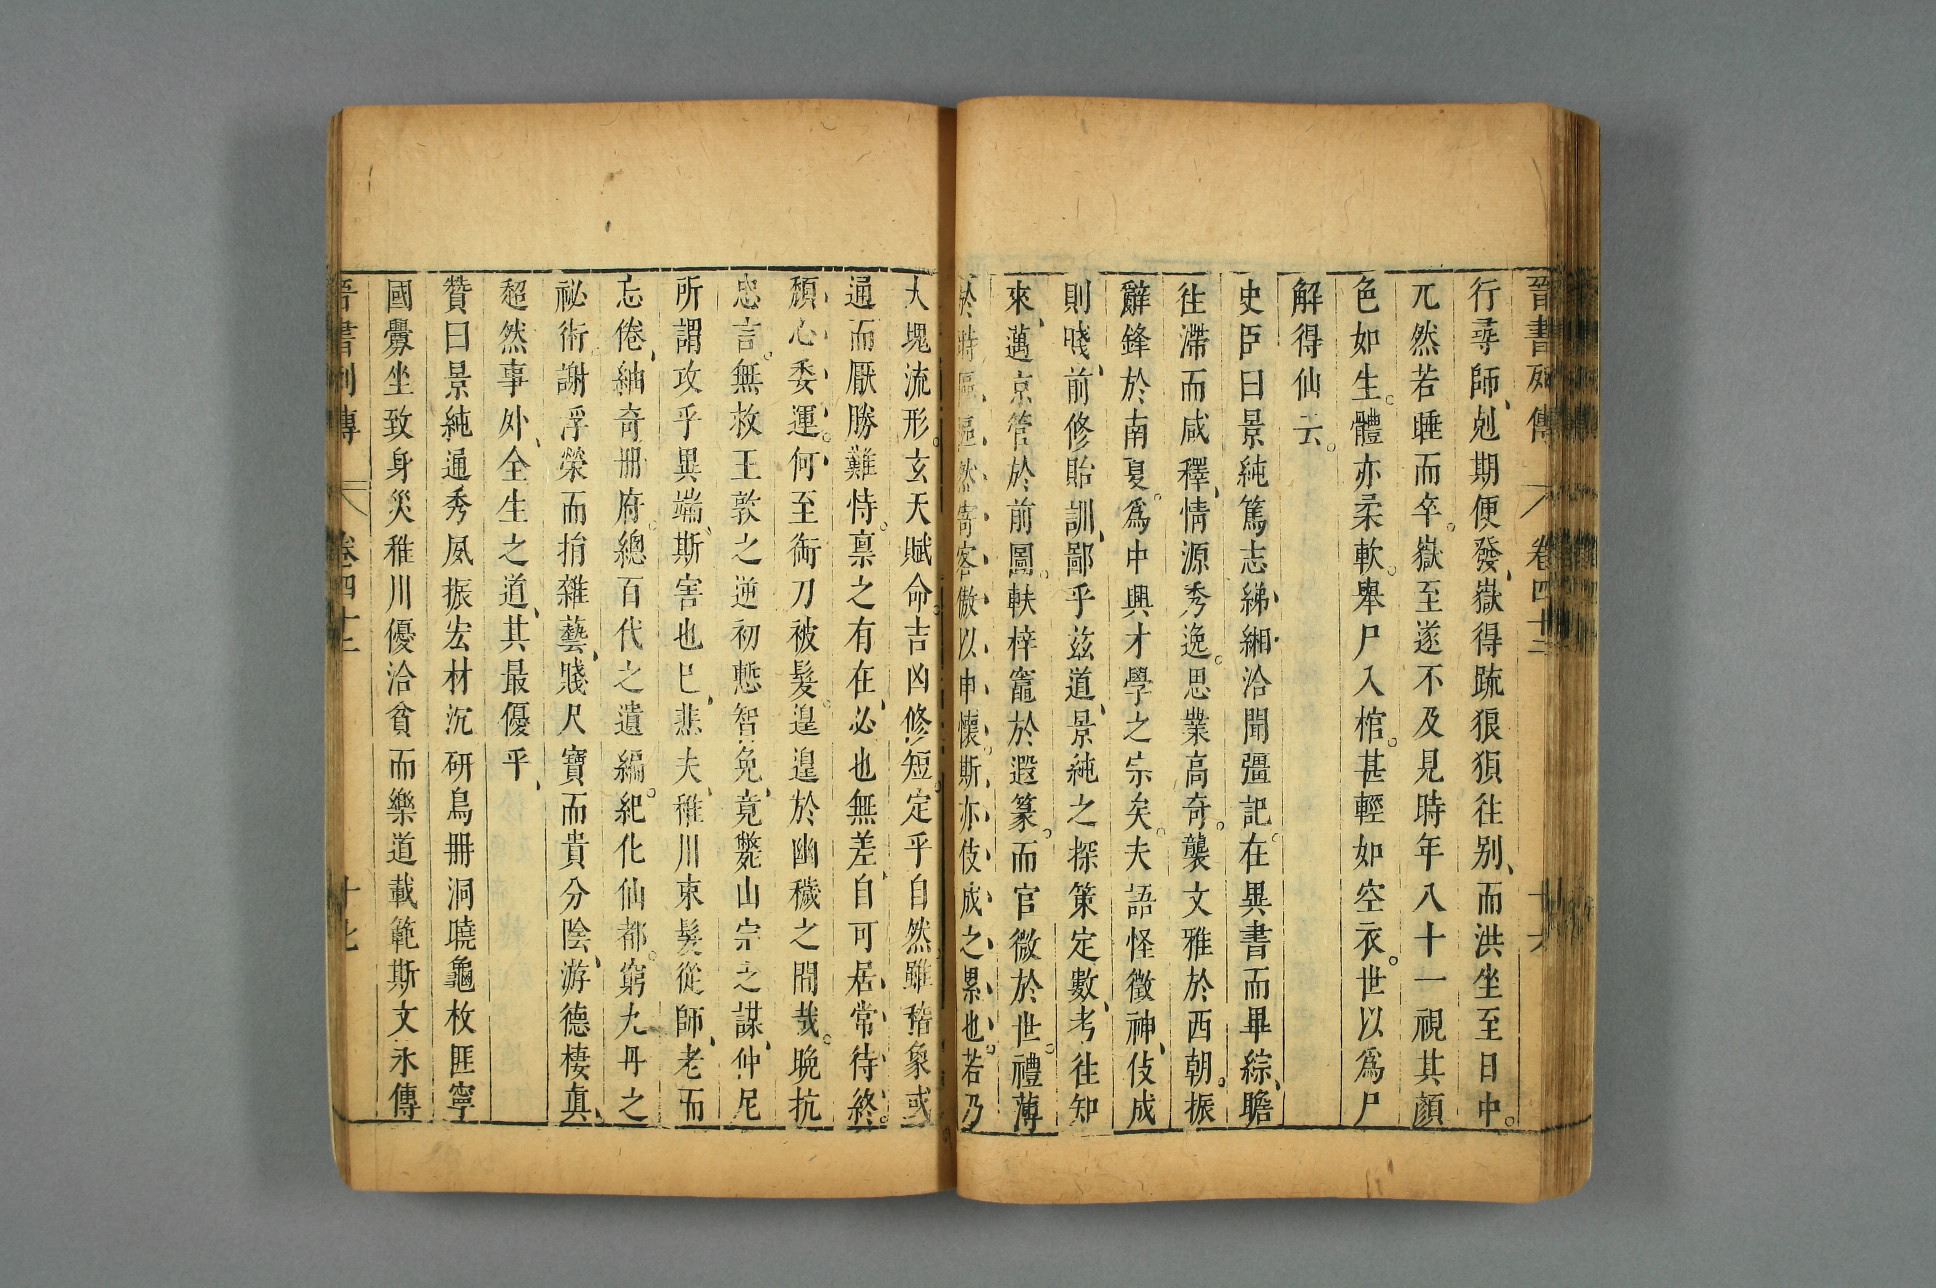 晉書列傳 卷四十二 十六
行尋師、剋期便發、嶽得疏狼狽往别、而洪坐至日中。
兀然若睡而卒。嶽至遂不及見時年八十一視其顏
色如生。體亦柔軟。舉尸入棺。甚輕如空衣。世以爲尸
解得仙云。
史臣曰景純篤志綈緗洽聞彊記。在異書而畢綜、瞻
往滯而咸釋、情源秀逸。思業高奇。襲文雅於西朝。振
辭鋒於南夏。爲中興才學之宗矣。夫語怪徵神、伎成
則賤、前修貽訓、鄙乎兹道、景純之探策定數、考往知
來、邁京管於前圖。軼梓竈於遐篆。而官微於世。禮薄
於時區區然寄客傲以申懷。斯亦伎成之累也。若乃
大塊流形。玄天賦命。吉凶修短。定乎自然。雖稽象或
通而厭勝難恃。禀之有在、必也無差、自可居常待終。
頹心委運。何至銜刀被髮。遑遑於幽穢之間哉。晚抗
忠言。無救王敦之逆初慙智免、竟斃山宗之謀、仲尼
所謂攻乎異端、斯害也已、悲夫、稚川束髮從師、老而
忘倦、紬奇册府。總百代之遺編。紀化仙都。窮九丹之
祕術、謝浮榮而捐雜藝、賤尺寶而貴分陰、游德棲真、
超然事外、全生之道、其最優乎、
贊曰景純通秀夙振宏材沉研鳥冊洞曉龜枚匪寧
國釁坐致身災稚川優洽貧而樂道載範斯文永傳
晉書列傳 卷四十二 十七